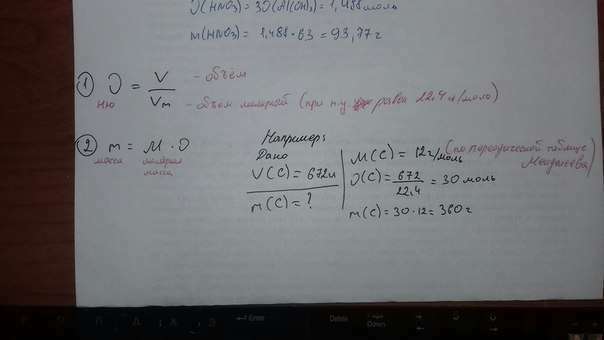 ν(HNO₃) = 3ν(Al(OH)₃) = 1,488 моль
m(HNO₃) = 1,488 · 63 = 93,77 г
① ν = V/Vm - объём
ню - объем молярный (при н.у. равен 22.4 л/моль)
② m = M · ν
масса молярная масса
Например:
Дано
V(C) = 672 л
m(C) = ?
M(C) = 12 г/моль (по периодической таблице Менделеева)
ν(C) = 672/22,4 = 30 моль
m(C) = 30 · 12 = 360 г
Enter
Delete
Down